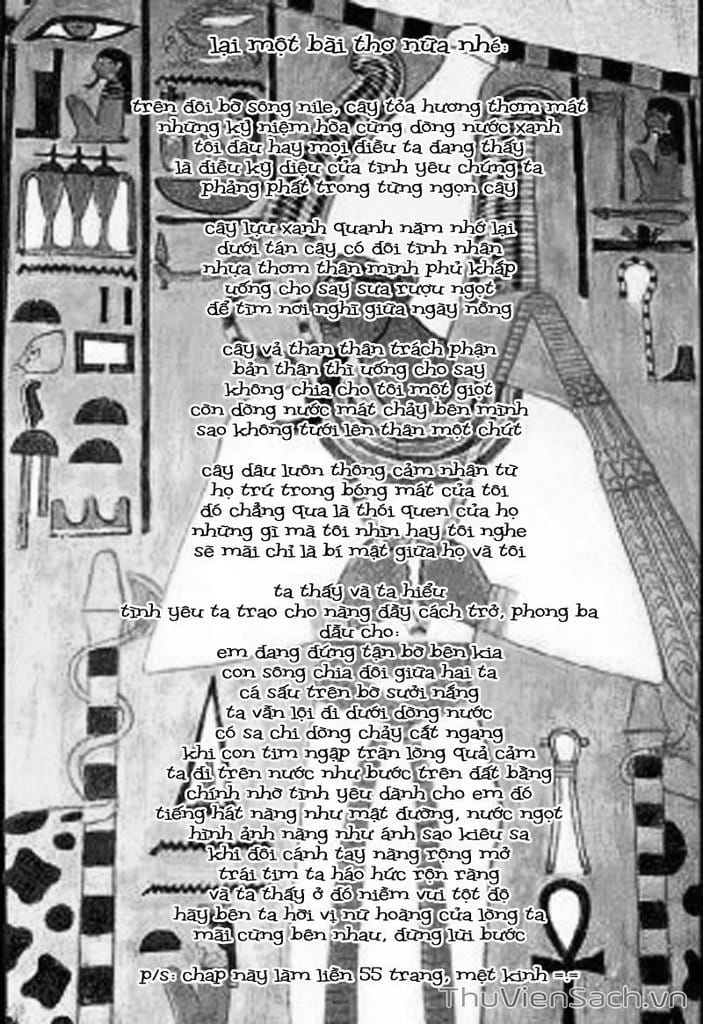 lại một bài thơ nữa nhé:
trên đôi bờ sông nile, cây tỏa hương thơm mát
những kỷ niệm hòa cùng dòng nước xanh
tôi đâu hay mọi điều ta đang thấy
là điều kỳ diệu của tình yêu chúng ta
phảng phất trong từng ngọn cây
cây lựu xanh quanh năm nhớ lại
dưới tán cây có đôi tình nhân
nhựa thơm thân mình phủ khắp
uống cho say sưa rượu ngọt
để tìm nơi nghỉ giữa ngày nồng
cây vả than thân trách phận
bản thân thì uống cho say
không chia cho tôi một giọt
còn dòng nước mát chảy bên mình
sao không tưới lên thân một chút
cây dâu luôn thông cảm nhân từ
họ trú trong bóng mát của tôi
đó chẳng qua là thói quen của họ
những gì mà tôi nhìn hay tôi nghe
sẽ mãi chỉ là bí mật giữa họ và tôi
ta thấy và ta hiểu
tình yêu ta trao cho nàng đầy cách trở, phong ba
dẫu cho:
em đang đứng tận bờ bên kia
con sông chia đôi giữa hai ta
cá sấu trên bờ sưởi nắng
ta vẫn lội đi dưới dòng nước
có sa chi dòng chảy cắt ngang
khi con tim ngập tràn lòng quả cảm
ta đi trên nước như bước trên đất bằng
chính nhờ tình yêu dành cho em đó
tiếng hát nàng như mật đường, nước ngọt
hình ảnh nàng như ánh sao kiêu sa
khi đôi cánh tay nàng rộng mở
trái tim ta háo hức rộn ràng
và ta thấy ở đó niềm vui tột độ
hãy bên ta hỡi vị nữ hoàng của lòng ta
mãi cùng bên nhau, đừng lùi bước
p/s: chap này làm liền 55 trang, mệt kinh =.=
ThuVienSach.vn